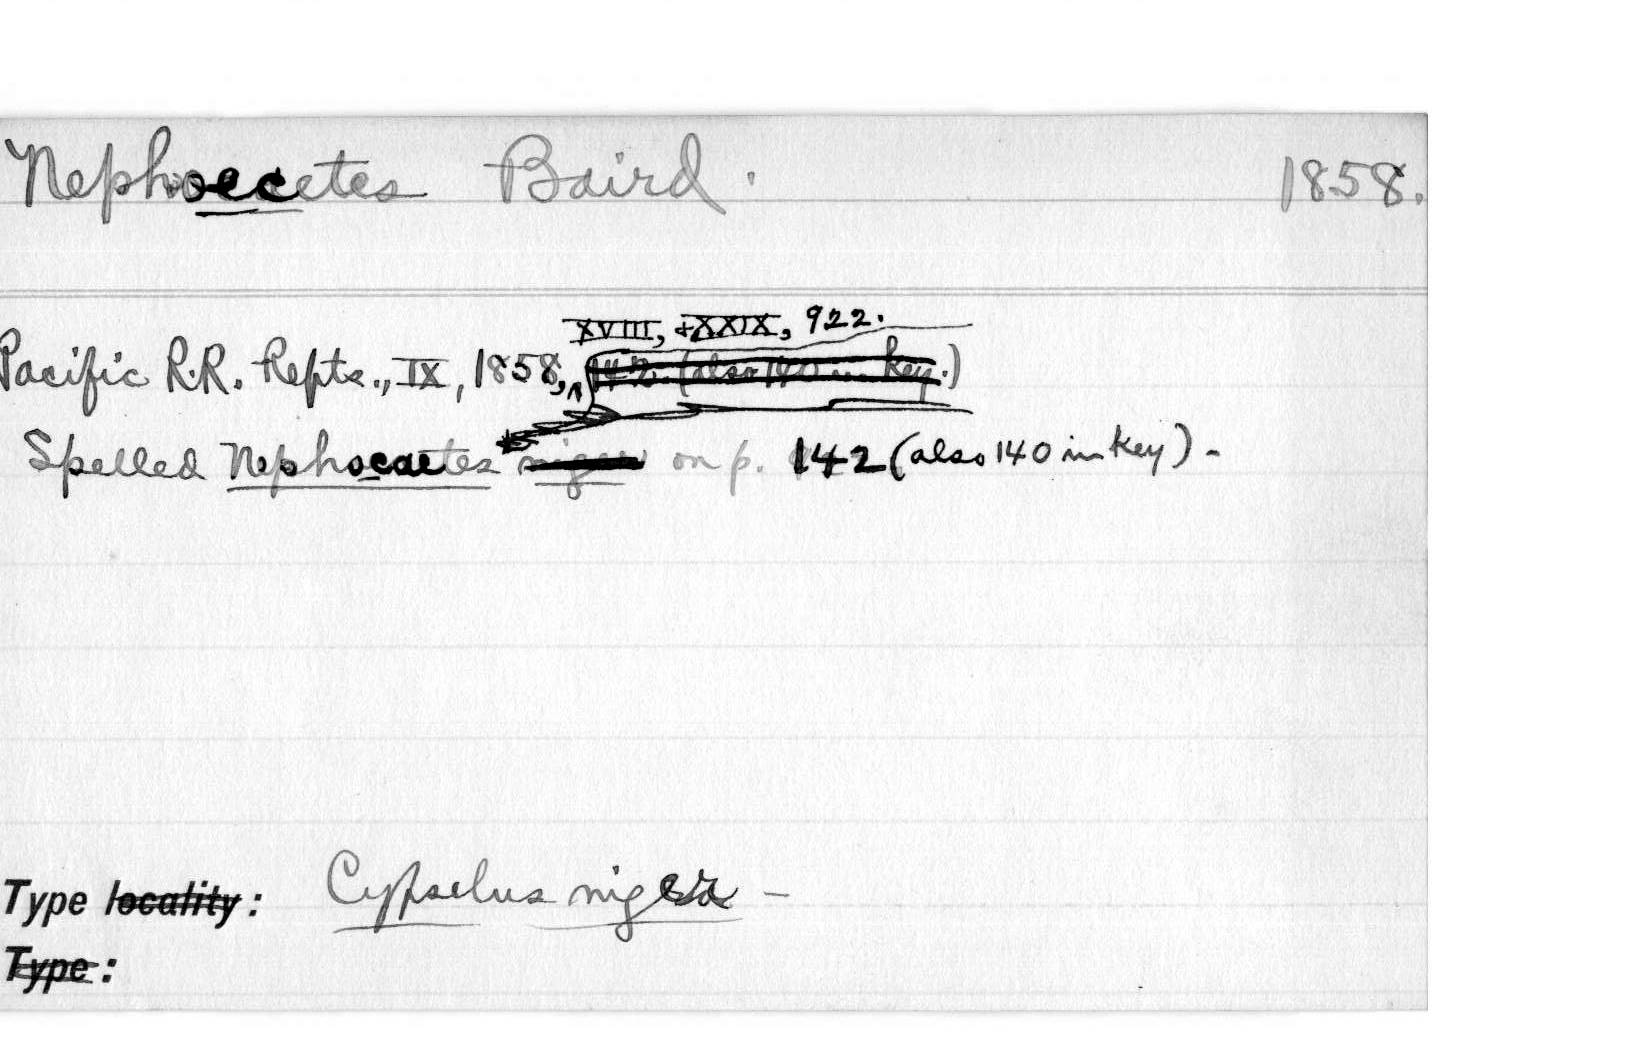 Nephoecetes Baird. 1858.
XVIII, + XXIX, 922.
Pacific R.R. Repts., IX, 1858, 142. (also 140 in key.)
Spelled Nephocaetes niger on p. 142 (also 140 in key). -
Type locality: Cypselus nigra -
Type: